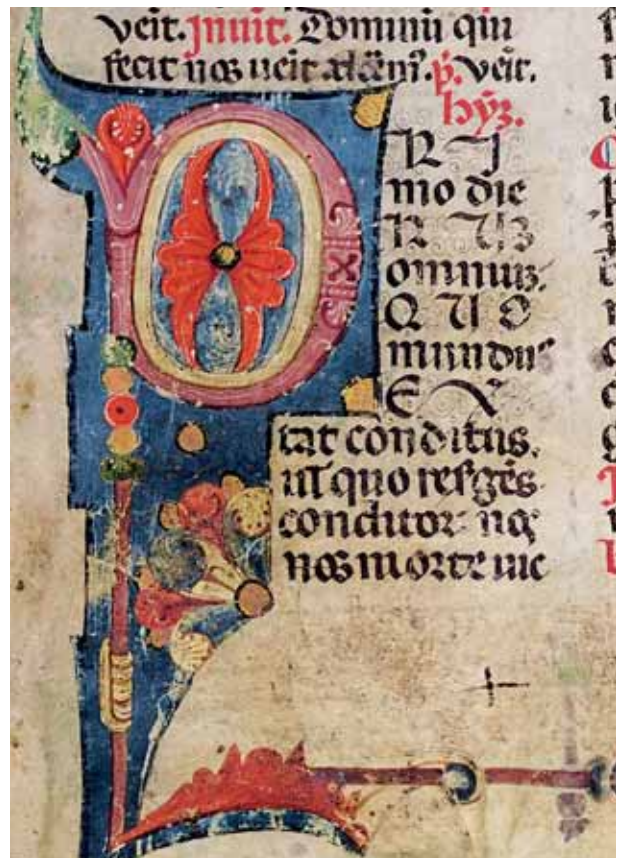 veit. Inuit. Domini qui
fecit nos veit.
p. veit.
hyz.
P RI
mo die
R UZ
omniuz.
QUO
mundus
EX
tat conditus.
ul quo resges
conditor nos
nos morte uic